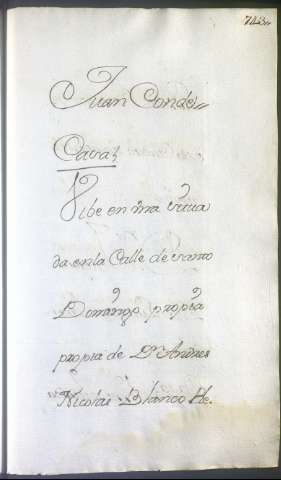 743
Juan Conde
Casa
Vibe en una situa
da en la Calle de santo
Domingo propia
propia de Dn Andres
Nicolás Blanco He.